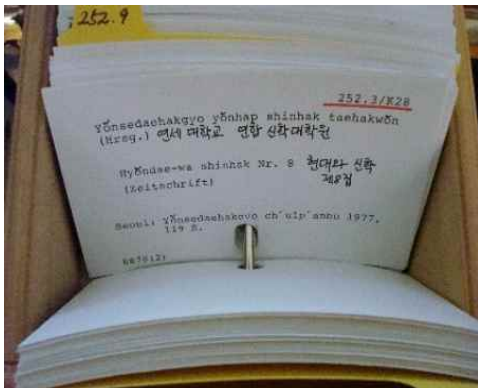 252.9
252.3/K28
Yŏnsedaehakgyo yŏnhap shinhak taehakwŏn
(Hrsg.) 연세 대학교 연합 신학대학원
Hyŏndae-wa shinhak Nr. 8 현대와 신학
(Zeitschrift) 제8집
Seoul: Yŏnsedaehakovo ch'ulp'anbu 1977.
119 S.